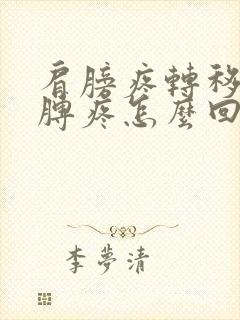 肩膀疼轉移
脾疼怎麼回
李夢清